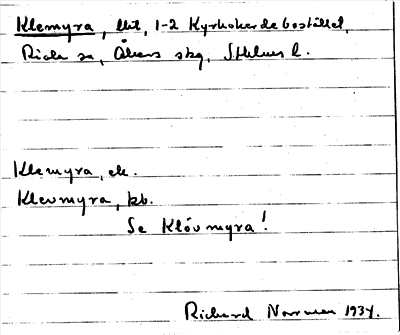 Klemyra, 1-2 Kyrkoherdebostället,
Riala sn, Åkers skg, Sthlms l.
Klemyra, ek.
Klevmyra, kb.
Se Klövmyra!
Richard Norrman 1934.